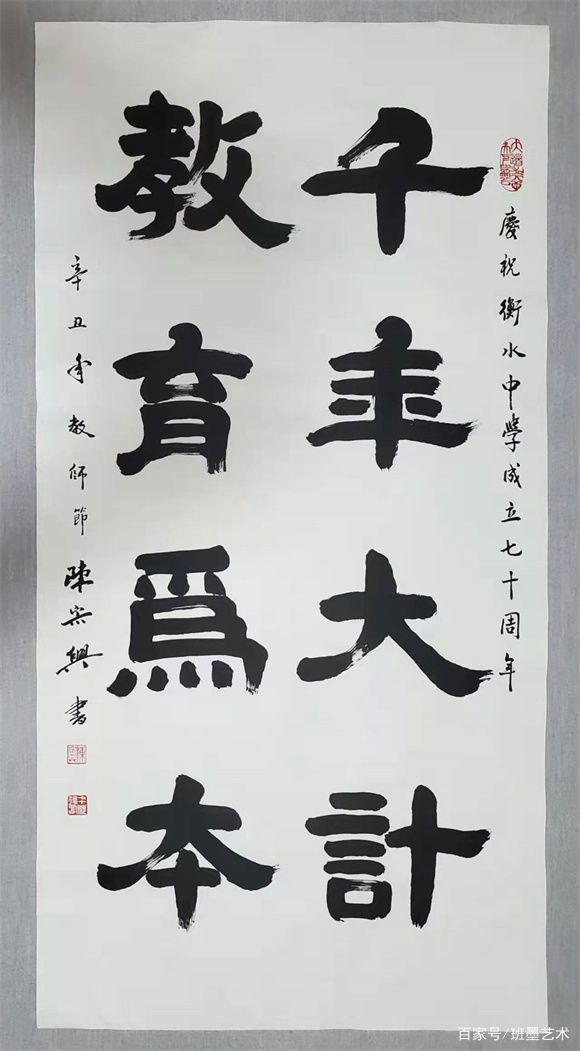 慶祝衡水中學成立七十周年
千年大計
教育為本
辛丑年教師節
陳 興書
百家号/班墨艺术